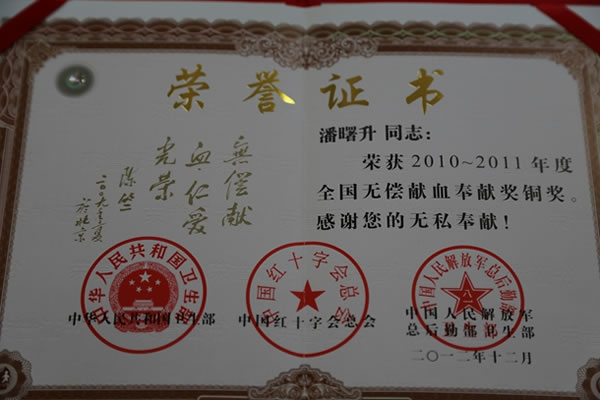 荣誉证书
潘曙升 同志：
荣获2010~2011年度
全国无偿献血奉献奖铜奖。
感谢您的无私奉献！
無偿献
血·仁爱
光荣
陈竺
二〇〇九年夏
于北京
中华人民共和国卫生部
中国红十字会总会
中国人民解放军总后勤
中华人民共和国卫生部
中国红十字会总会
中国人民解放军
总后勤部卫生部
二〇一二年十二月